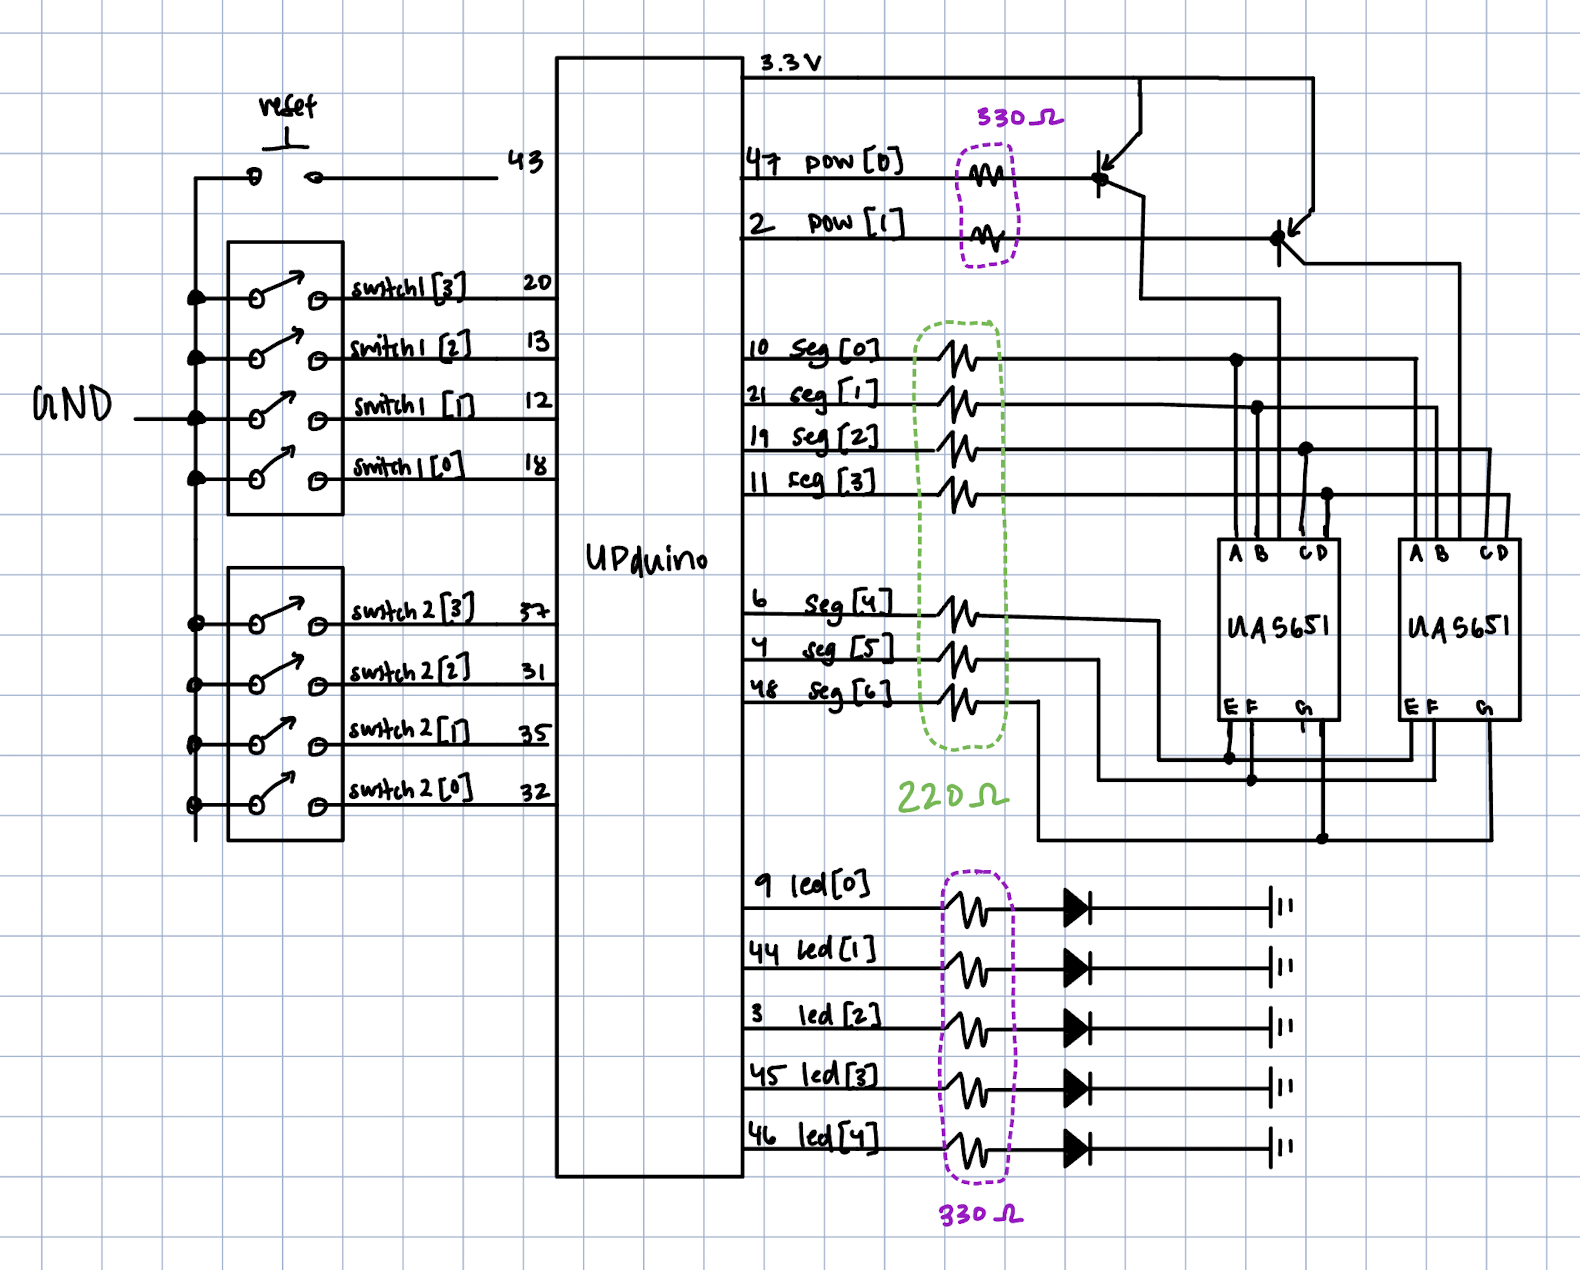 reset
43
switch1 [3] 20
switch1 [2] 13
GND
switch1 [1] 12
switch1 [0] 18
switch 2 [3] 37
switch 2 [2] 31
switch 2 [1] 35
switch 2 [0] 32
UPduino
3.3V
330Ω
47 pow [0]
2 pow [1]
10 seg [0]
21 seg [1]
19 seg [2]
11 seg [3]
6 seg [4]
4 seg [5]
48 seg [6]
220Ω
A B C D
UA5651
E F G
A B C D
UA5651
E F G
9 led [0]
44 led [1]
3 led [2]
45 led [3]
46 led [4]
330Ω